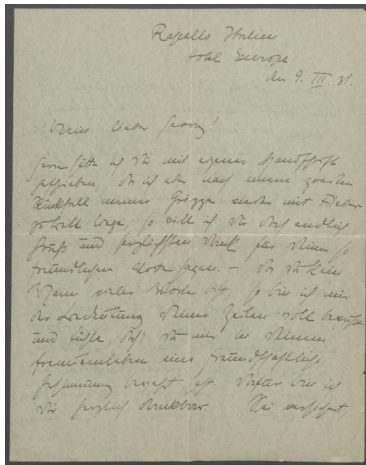 Rapallo Italien
Hotel Europe
den 9. III. 31.
Mein lieber Georg!
Gern hätte ich Dir mit eigener Handschrift
geschrieben. Da ich aber nach einem zweiten
Rückfall meiner Grippe wieder mit Fieber
zu Bett liege, so will ich Dir doch endlich
Gruß und herzlichsten Dank für Deine so
freundlichen Worte sagen. — Da Du kein
Mann vieler Worte bist, so bin ich mir
der Bedeutung Deiner Zeilen voll bewußt
und fühle, daß Du mir in Deinem
eine freundschaftliche
Gesinnung bewahrt hast. Dafür bin ich
Dir herzlich dankbar. Sei versichert,